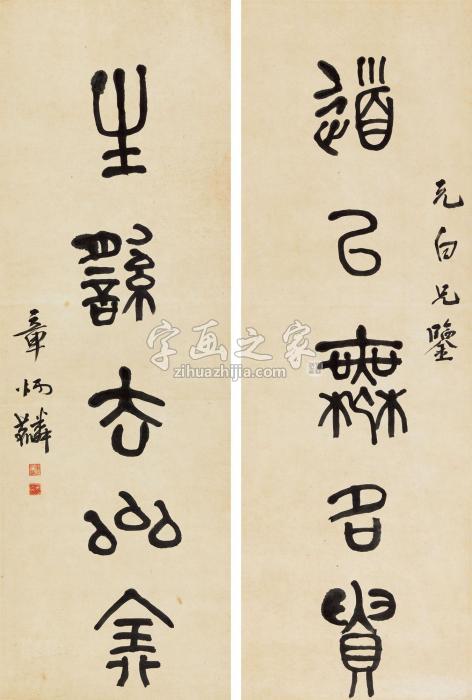 元白兄鑒
道以無名貴
生繇去厽全
章炳麟
字画之家
zihuazhijia.com